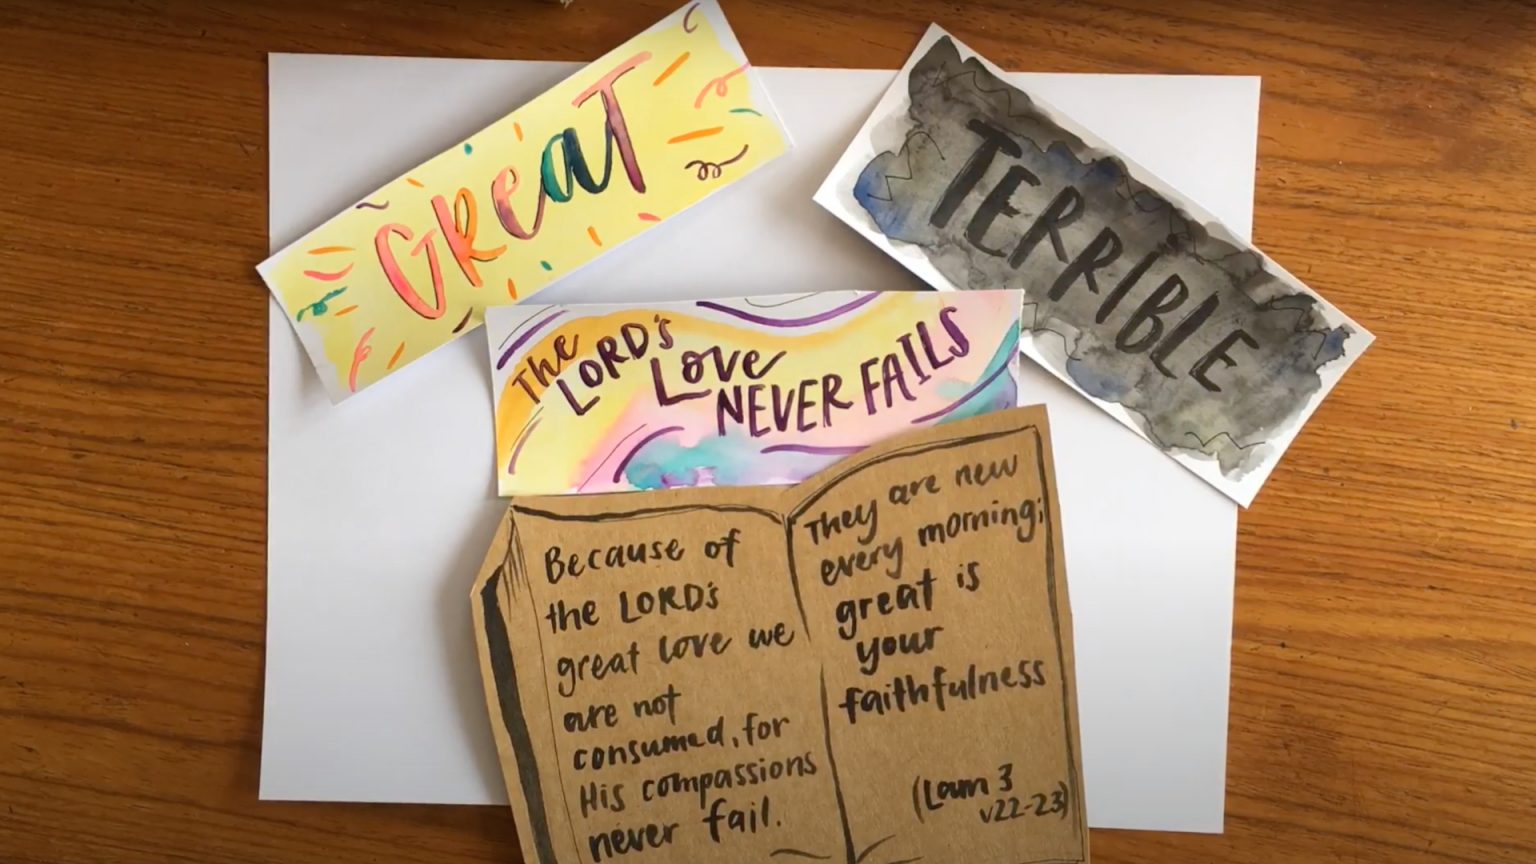 GReaT
TERRIBLE
The
LORD's
Love
NEVER FAILS
Because of
the LORD's
great love we
are not
consumed, for
His compassions
never fail.
They are new
every morning;
great is
your
faithfulness
(Lam 3
v22-23)